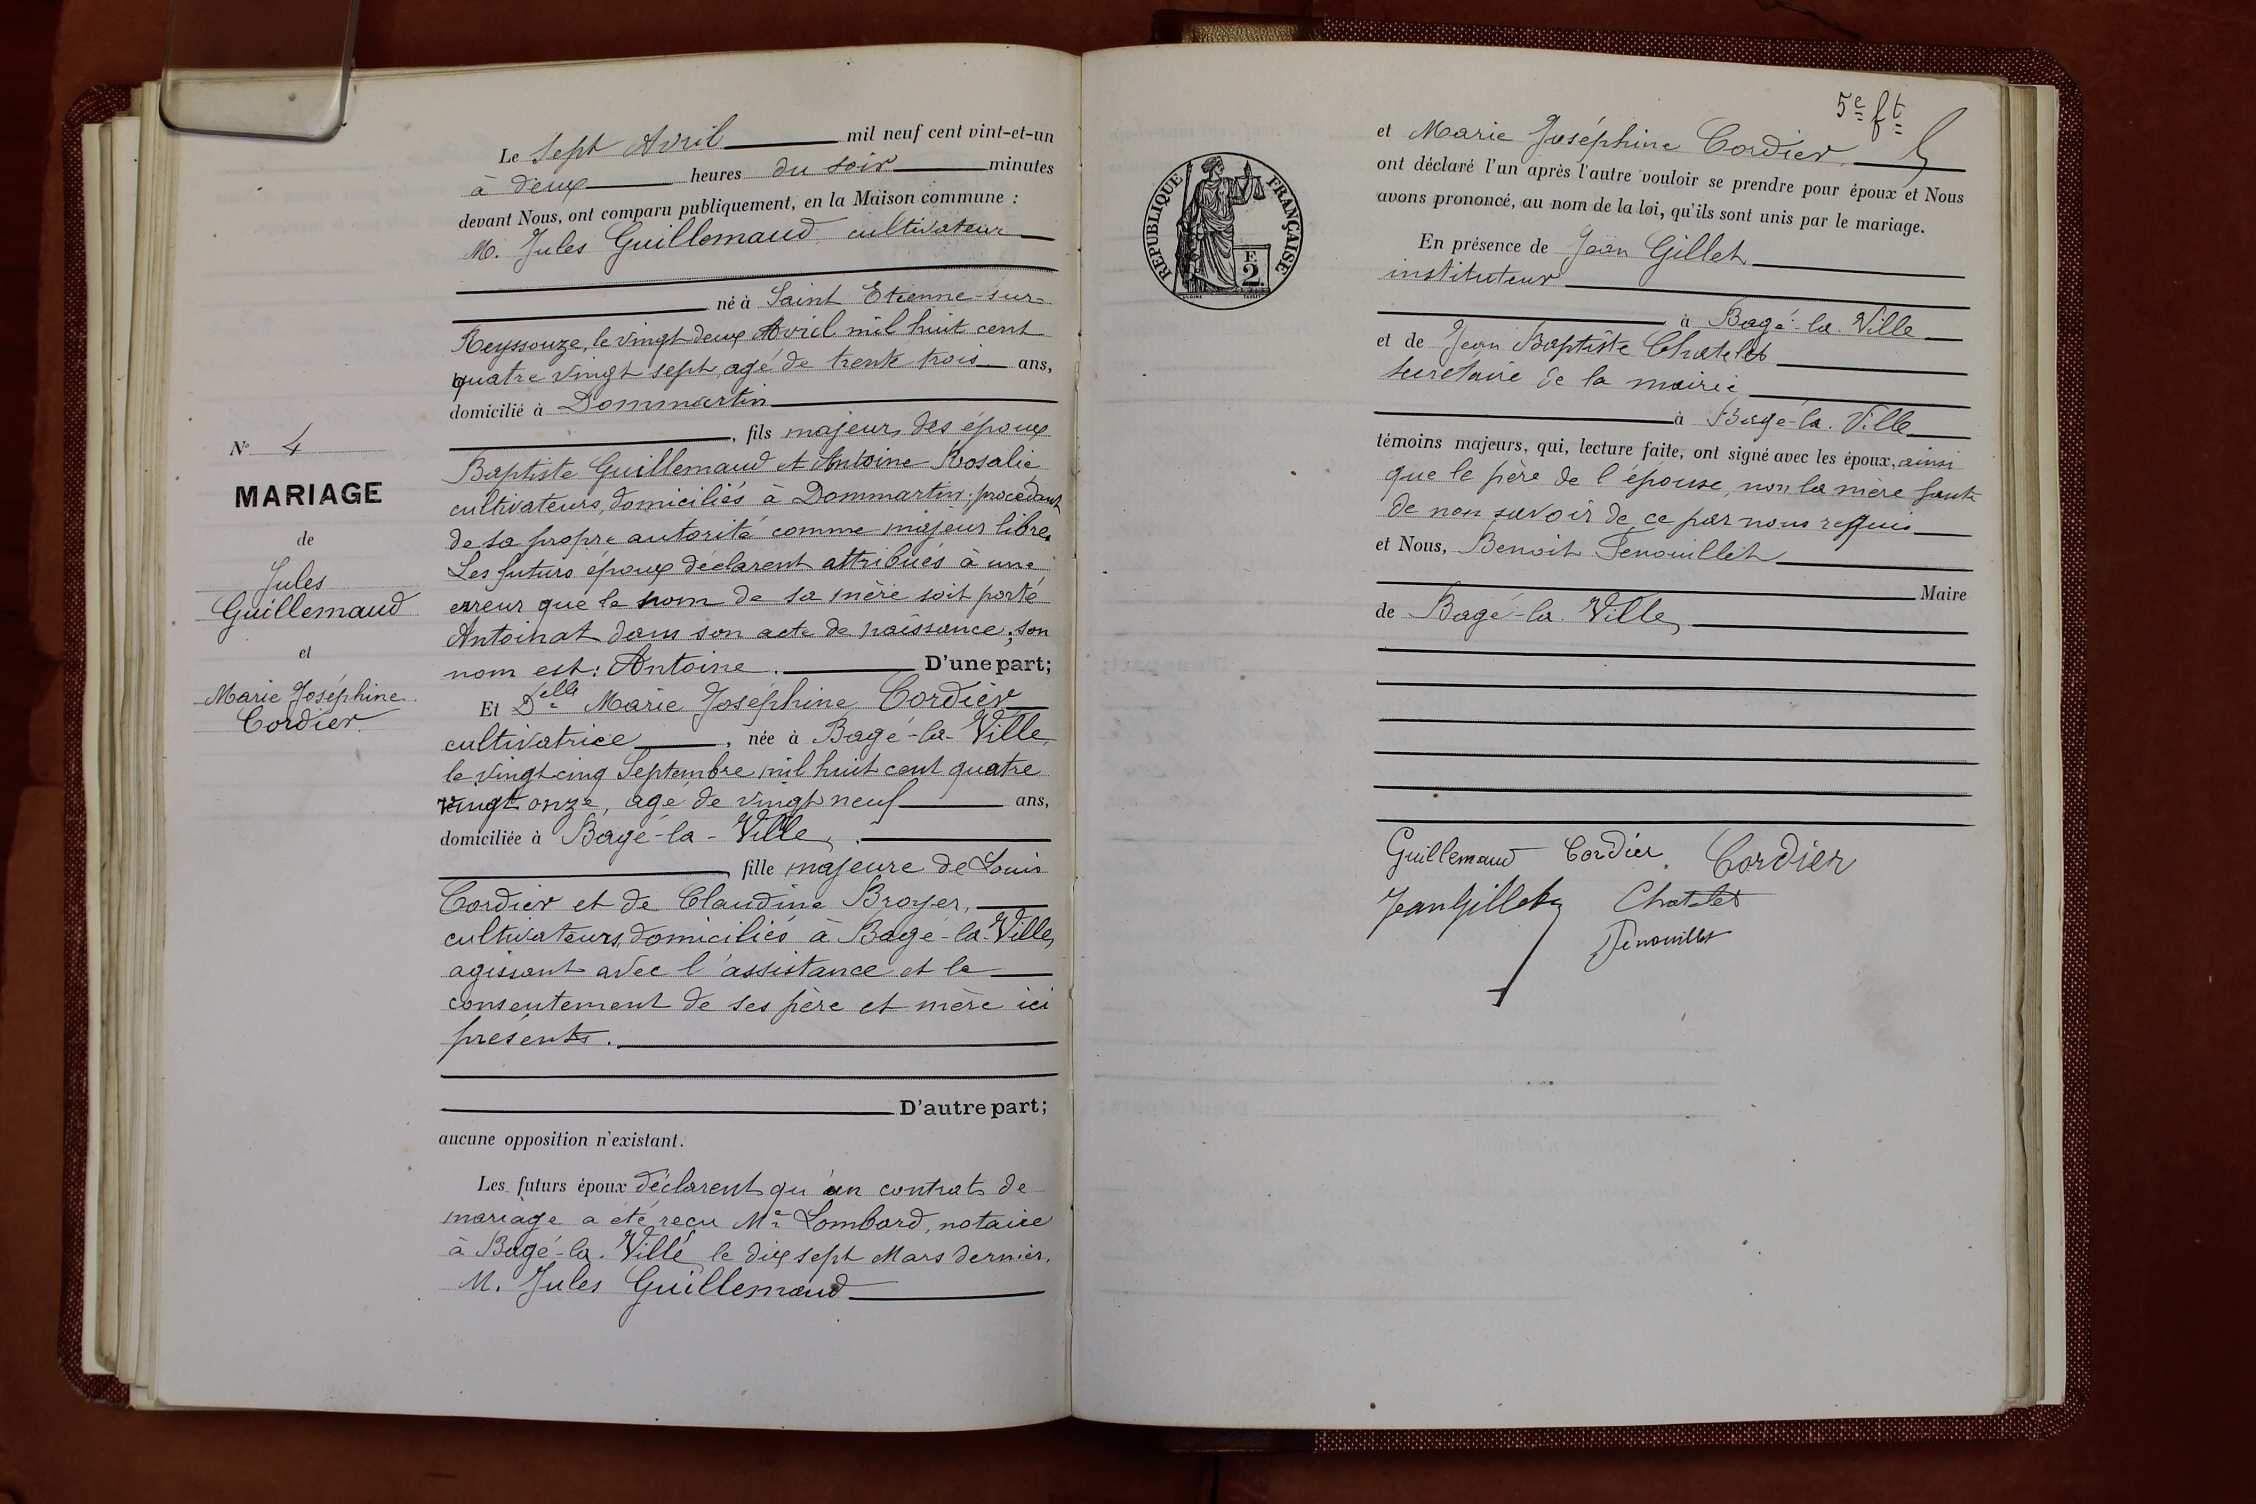 Le Sept Avril mil neuf cent vint-et-un
à deux heures du soir minutes
devant Nous, ont comparu publiquement, en la Maison commune :
M. Jules Guillemaud cultivateur
né à Saint Etienne-sur-
Reyssouze, le vingt deux Avril mil huit cent
quatre vingt sept, agé de trente trois ans,
domicilié à Dommartin
, fils majeur, des époux
Baptiste Guillemaud et Antoine Rosalie
cultivateurs, domiciliés à Dommartin; procédant
de sa propre autorité comme majeur libre.
Les futurs époux déclarent attribués à une
erreur que le nom de sa mère soit porté
Antoinat dans son acte de naissance; son
nom est: Antoine. D'une part;
Et Delle Marie Joséphine Cordier
cultivatrice, née à Bagé-la-Ville,
le vingt-cinq Septembre mil huit cent quatre
vingt onze, agé de vingt neuf ans,
domiciliée à Bagé-la-Ville,
, fille majeure de Louis
Cordier et de Claudine Broyer,
cultivateurs, domiciliés à Bagé-la-Ville,
agissant avec l'assistance et le
consentement de ses père et mère ici
présents.
D'autre part;
aucune opposition n'existant.
Les futurs époux déclarent qu'un contrat de
mariage a été reçu Me Lombard, notaire
à Bagé-la-Ville le dix sept Mars dernier.
M. Jules Guillemaud
N° 4
MARIAGE
de
Jules
Guillemaud
et
Marie Joséphine
Cordier
5e ft
RÉPUBLIQUE FRANÇAISE
F.
2
et Marie Joséphine Cordier
ont déclaré l'un après l'autre vouloir se prendre pour époux et Nous
avons prononcé, au nom de la loi, qu'ils sont unis par le mariage.
En présence de Jean Gillet
instituteur
à Bagé-la-Ville
et de Jean Baptiste Chatelet
secrétaire de la mairie
à Bagé-la-Ville
témoins majeurs, qui, lecture faite, ont signé avec les époux, ainsi
que le père de l'épouse, non la mère faute
de non savoir de ce par nous requis
et Nous, Benoit Fenouillet
Maire
de Bagé-la-Ville,
Guillemaud Cordier Cordier
Jean Gillet Chatelet
Fenouillet